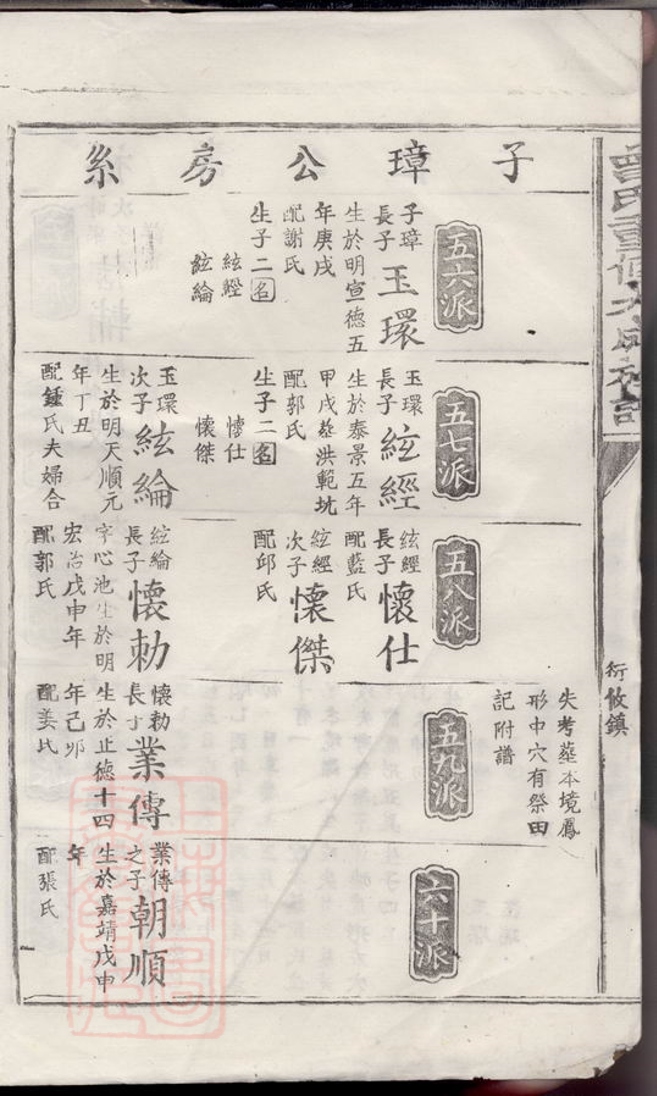 曾氏重修大成族譜
衍攸鎮
子璋公房系
失考塟本境鳳
形中穴有祭田
記附譜
五六派
子璋
長子
玉環
生於明宣德五
年庚戌
配謝氏
生子二名
絃經
絃綸
五七派
玉環
長子
絃經
生於泰景五年
甲戌塟洪範坑
配郭氏
生子二名
懷仕
懷傑
玉環
次子
絃綸
生於明天順元
年丁丑
配鍾氏夫婦合
五八派
絃經
長子
懷仕
配藍氏
絃經
次子
懷傑
配邱氏
絃綸
長子
懷勅
字心池生於明
宏治戊申年
配郭氏
五九派
懷勅
長子
業傳
生於正德十四
年己卯
配姜氏
六十派
業傳
之子
朝順
生於嘉靖戊申
年
配張氏